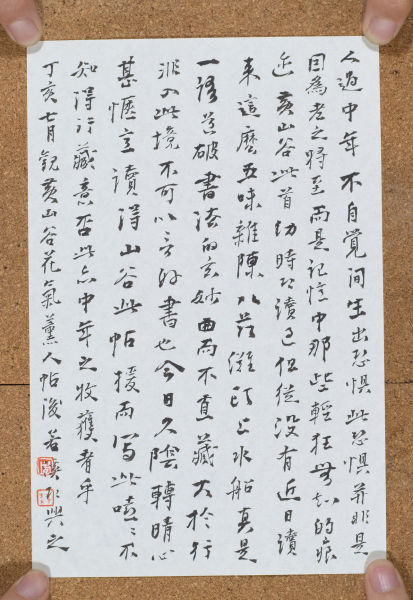 人過中年不自覺間生出恐懼此恐懼并非是
因為老之將至而是記憶中那些輕狂無知的痕
迹黃山谷此首幼時即讀過但從沒有近日讀
來這麼五味雜陳八節灘頭上水船真是
一語道破書法的玄妙曲而不直藏大於行
非入此境不可以言好書也今日久陰轉晴心
甚愜意讀得山谷此帖援而寫此嘻〻不
知得行藏意否此亦中年之收穫者乎
丁亥七月觀黃山谷花氣薰人帖後若即興之